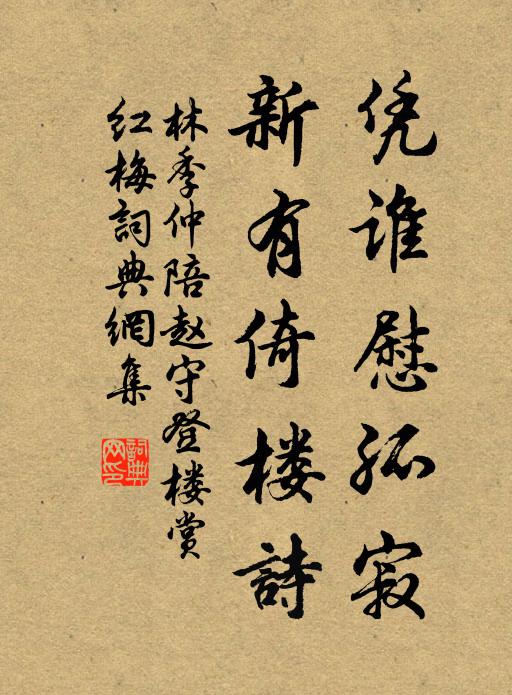 凭谁慰孤寂
新有倚楼詩
林季仲陪赵守登楼赏
红梅詞典網集
詞典网印